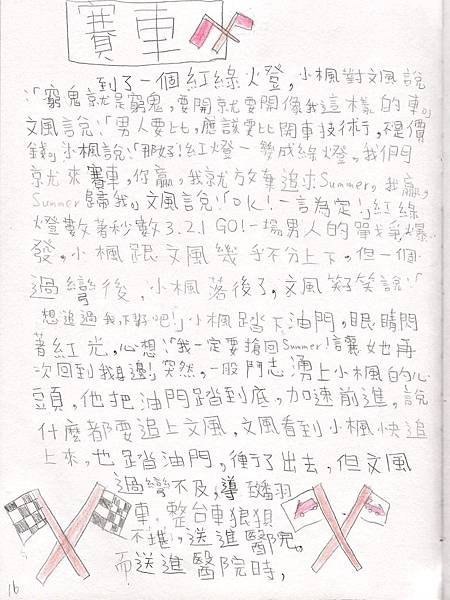 賽車
到了一個紅綠燈,小楓對文風說
:「窮鬼就是窮鬼,要開就要開像我這樣的車。」
文風說:「男人要比,應該要比開車技術,不是價
錢。」小楓說:「那好!紅燈一變成綠燈,我們
就來賽車,你贏,我就放棄追求Summer,我贏,
Summer歸我。」文風說:「OK!一言為定!」紅綠
燈數著秒數3.2.1 GO!一場男人的戰爭爆
發,小楓跟文風幾乎不分上下,但一個
過彎後,小楓落後了,文風笑笑說:「
想追過我,下輩子吧!」小楓踏下油門,眼睛閃
著紅光,心想:「我一定要搶回Summer!讓她再
次回到我身邊!」突然,一股鬥志湧上小楓的心
頭,他把油門踏到底,加速前進,說
什麼都要追上文風,文風看到小楓快追
上來,也踏油門,衝了出去,但文風
過彎不及,導致翻
車,整台車狼狽
不堪,送進醫院。
而送進醫院時,
16